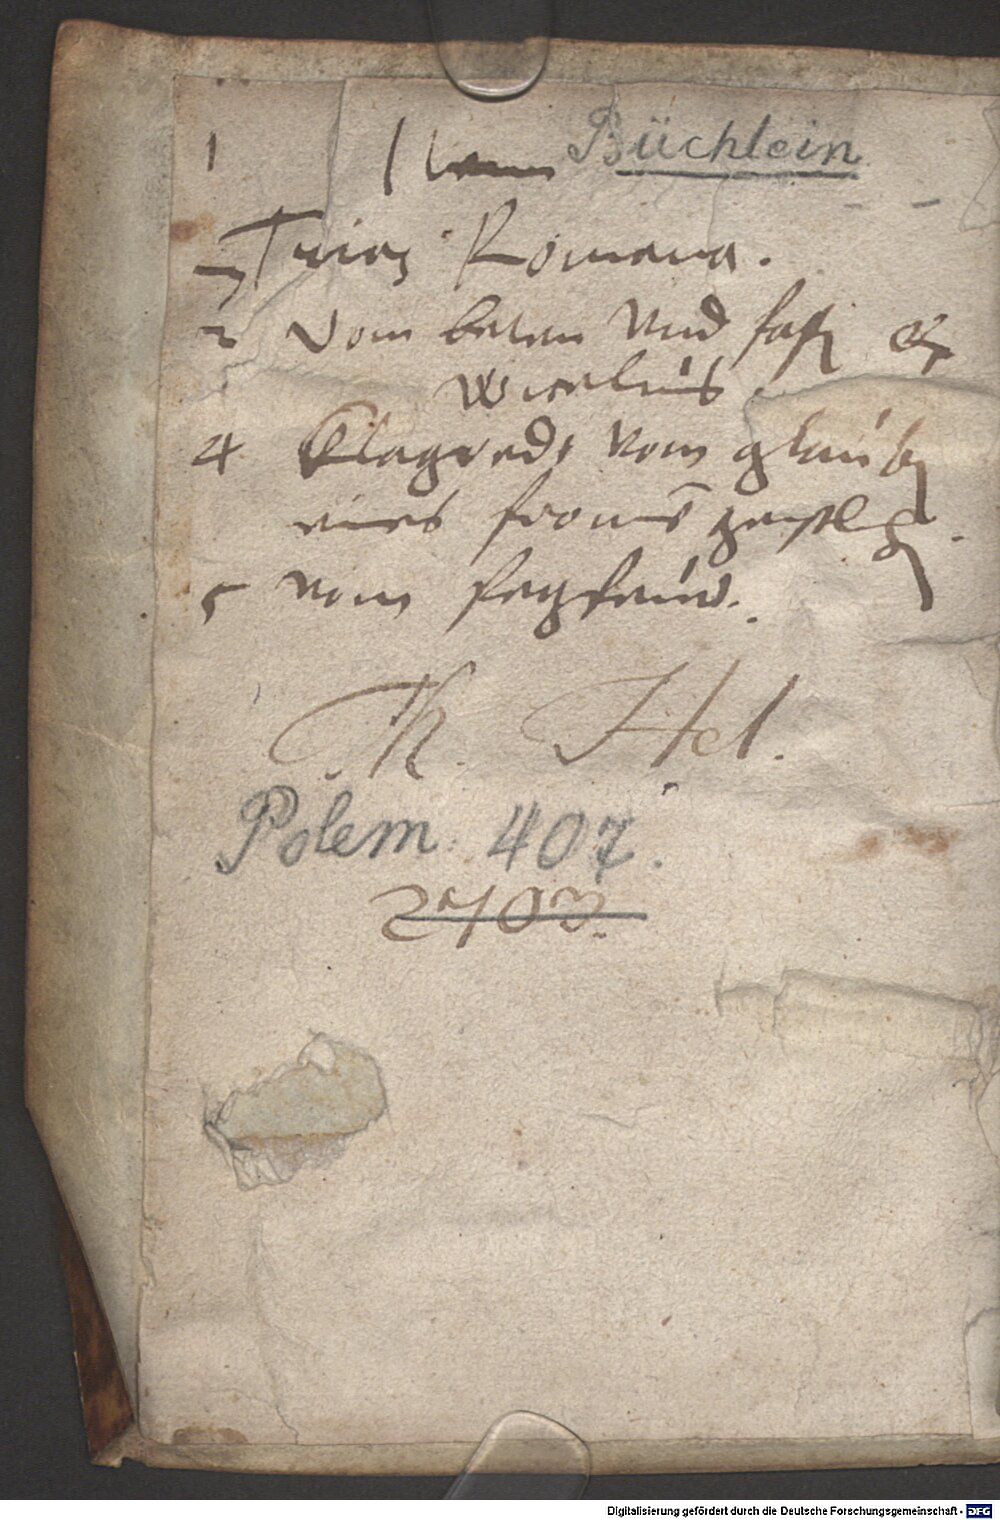 1 Büchlein
Trias Romana.
2 Vom beten und fast ꝛc
Wicelius
4 Klagred vom glaub
eines from̄ geistl
5 vom fegfeuer.
Th. Hel.
Polem. 407.
Digitalisierung gefördert durch die Deutsche Forschungsgemeinschaft - DFG